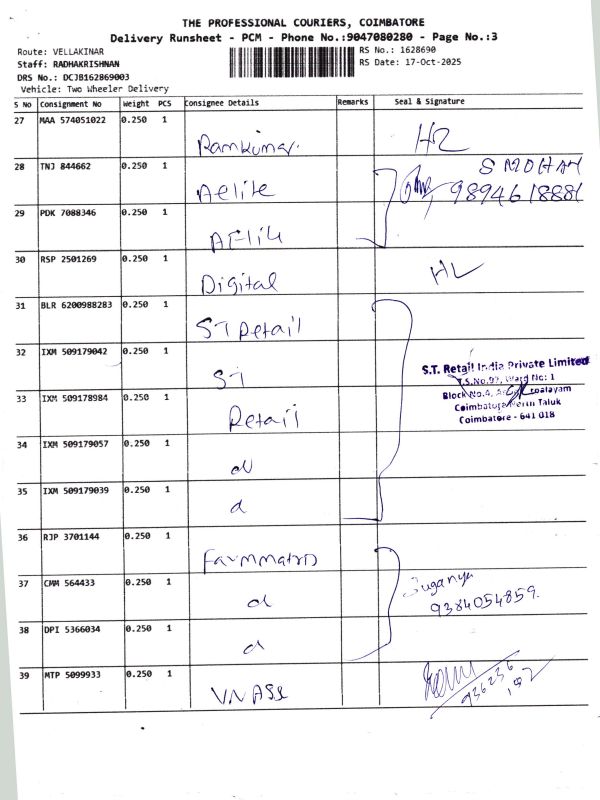 THE PROFESSIONAL COURIERS, COIMBATORE
Delivery Runsheet - PCM - Phone No.:9047080280 - Page No.:3
Route: VELLAKINAR
RS No.: 1628690
Staff: RADHAKRISHNAN
RS Date: 17-Oct-2025
DRS No.: DCJB162869003
Vehicle: Two Wheeler Delivery
S No Consignment No Weight PCS Consignee Details Remarks Seal & Signature
27 MAA 574051022 0.250 1 Ramkumar
28 TNJ 844662 0.250 1 Aelite S MOHAN
9894618881
29 PDK 7088346 0.250 1
30 RSP 2501269 0.250 1 Digital
31 BLR 6200988283 0.250 1 ST Retail
32 IXM 509179042 0.250 1 ST
S.T. Retail India Private Limited
T.S.No.97, Ward No: 1
33 IXM 509178984 0.250 1 Retail
Block No.4,
Coimbatore North Taluk
Coimbatore - 641 018
34 IXM 509179057 0.250 1
35 IXM 509179039 0.250 1 d
36 RJP 3701144 0.250 1
37 CMM 564433 0.250 1 d Suganya
9384054859.
38 DPI 5366034 0.250 1 d
39 MTP 5099933 0.250 1
936236